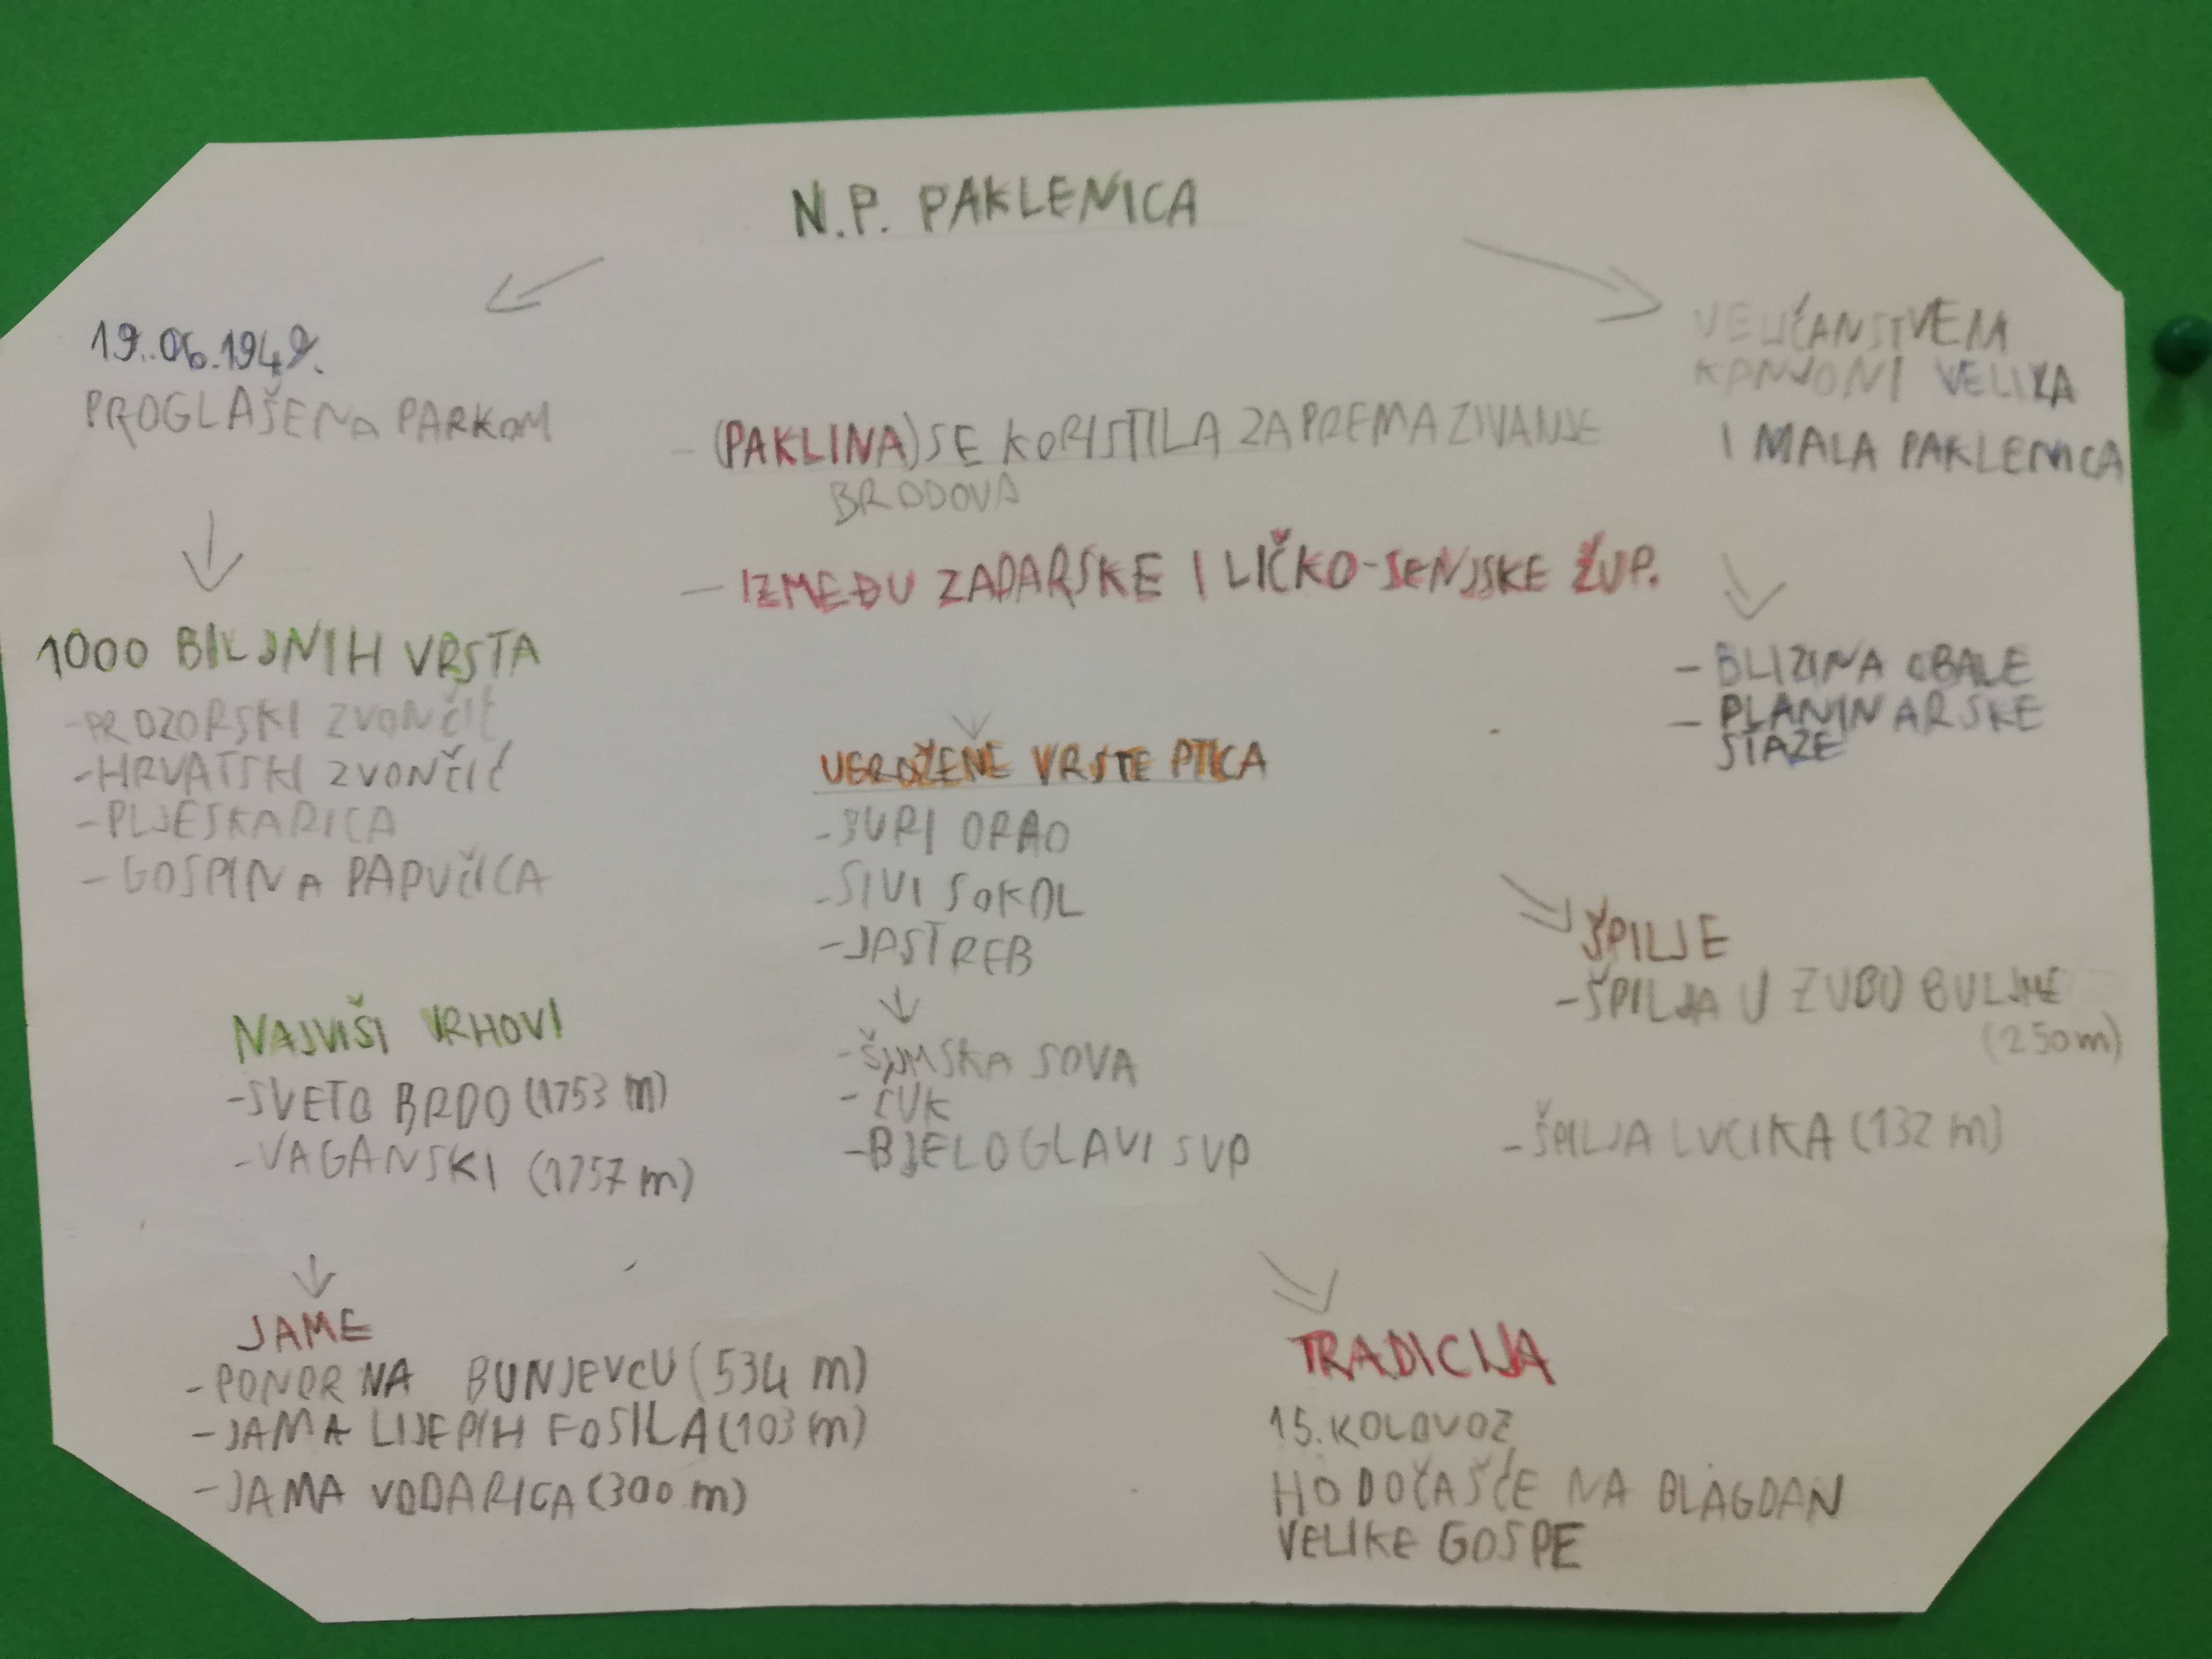 N.P. PAKLENICA
19.06.1949.
PROGLAŠENA PARKOM
1000 BILJNIH VRSTA
-PROZORSKI ZVONČIĆ
-HRVATSKI ZVONČIĆ
-PLJESKARICA
-GOSPINA PAPUČICA
NAJVIŠI VRHOVI
-SVETO BRDO (1753 m)
-VAGANSKI (1757 m)
JAME
-PONOR NA BUNJEVCU (534 m)
-JAMA LIJEPIH FOSILA (103 m)
-JAMA VODARICA (300 m)
- (PAKLINA) SE KORISTILA ZA PREMAZIVANJE
BRODOVA
- IZMEĐU ZADARSKE I LIČKO-SENJSKE ŽUP.
UGROŽENE VRSTE PTICA
-SURI ORAO
-SIVI SOKOL
-JASTREB
-ŠUMSKA SOVA
-ĆUK
-BJELOGLAVI SUP
VELIČANSTVENI
KANJONI VELIKA
I MALA PAKLENICA
- BLIZINA OBALE
- PLANINARSKE
STAZE
ŠPILJE
-ŠPILJA U ZUBU BULJME
(250m)
-ŠPILJA LUCIKA (132 m)
TRADICIJA
15. KOLOVOZ
HODOČAŠĆE NA BLAGDAN
VELIKE GOSPE